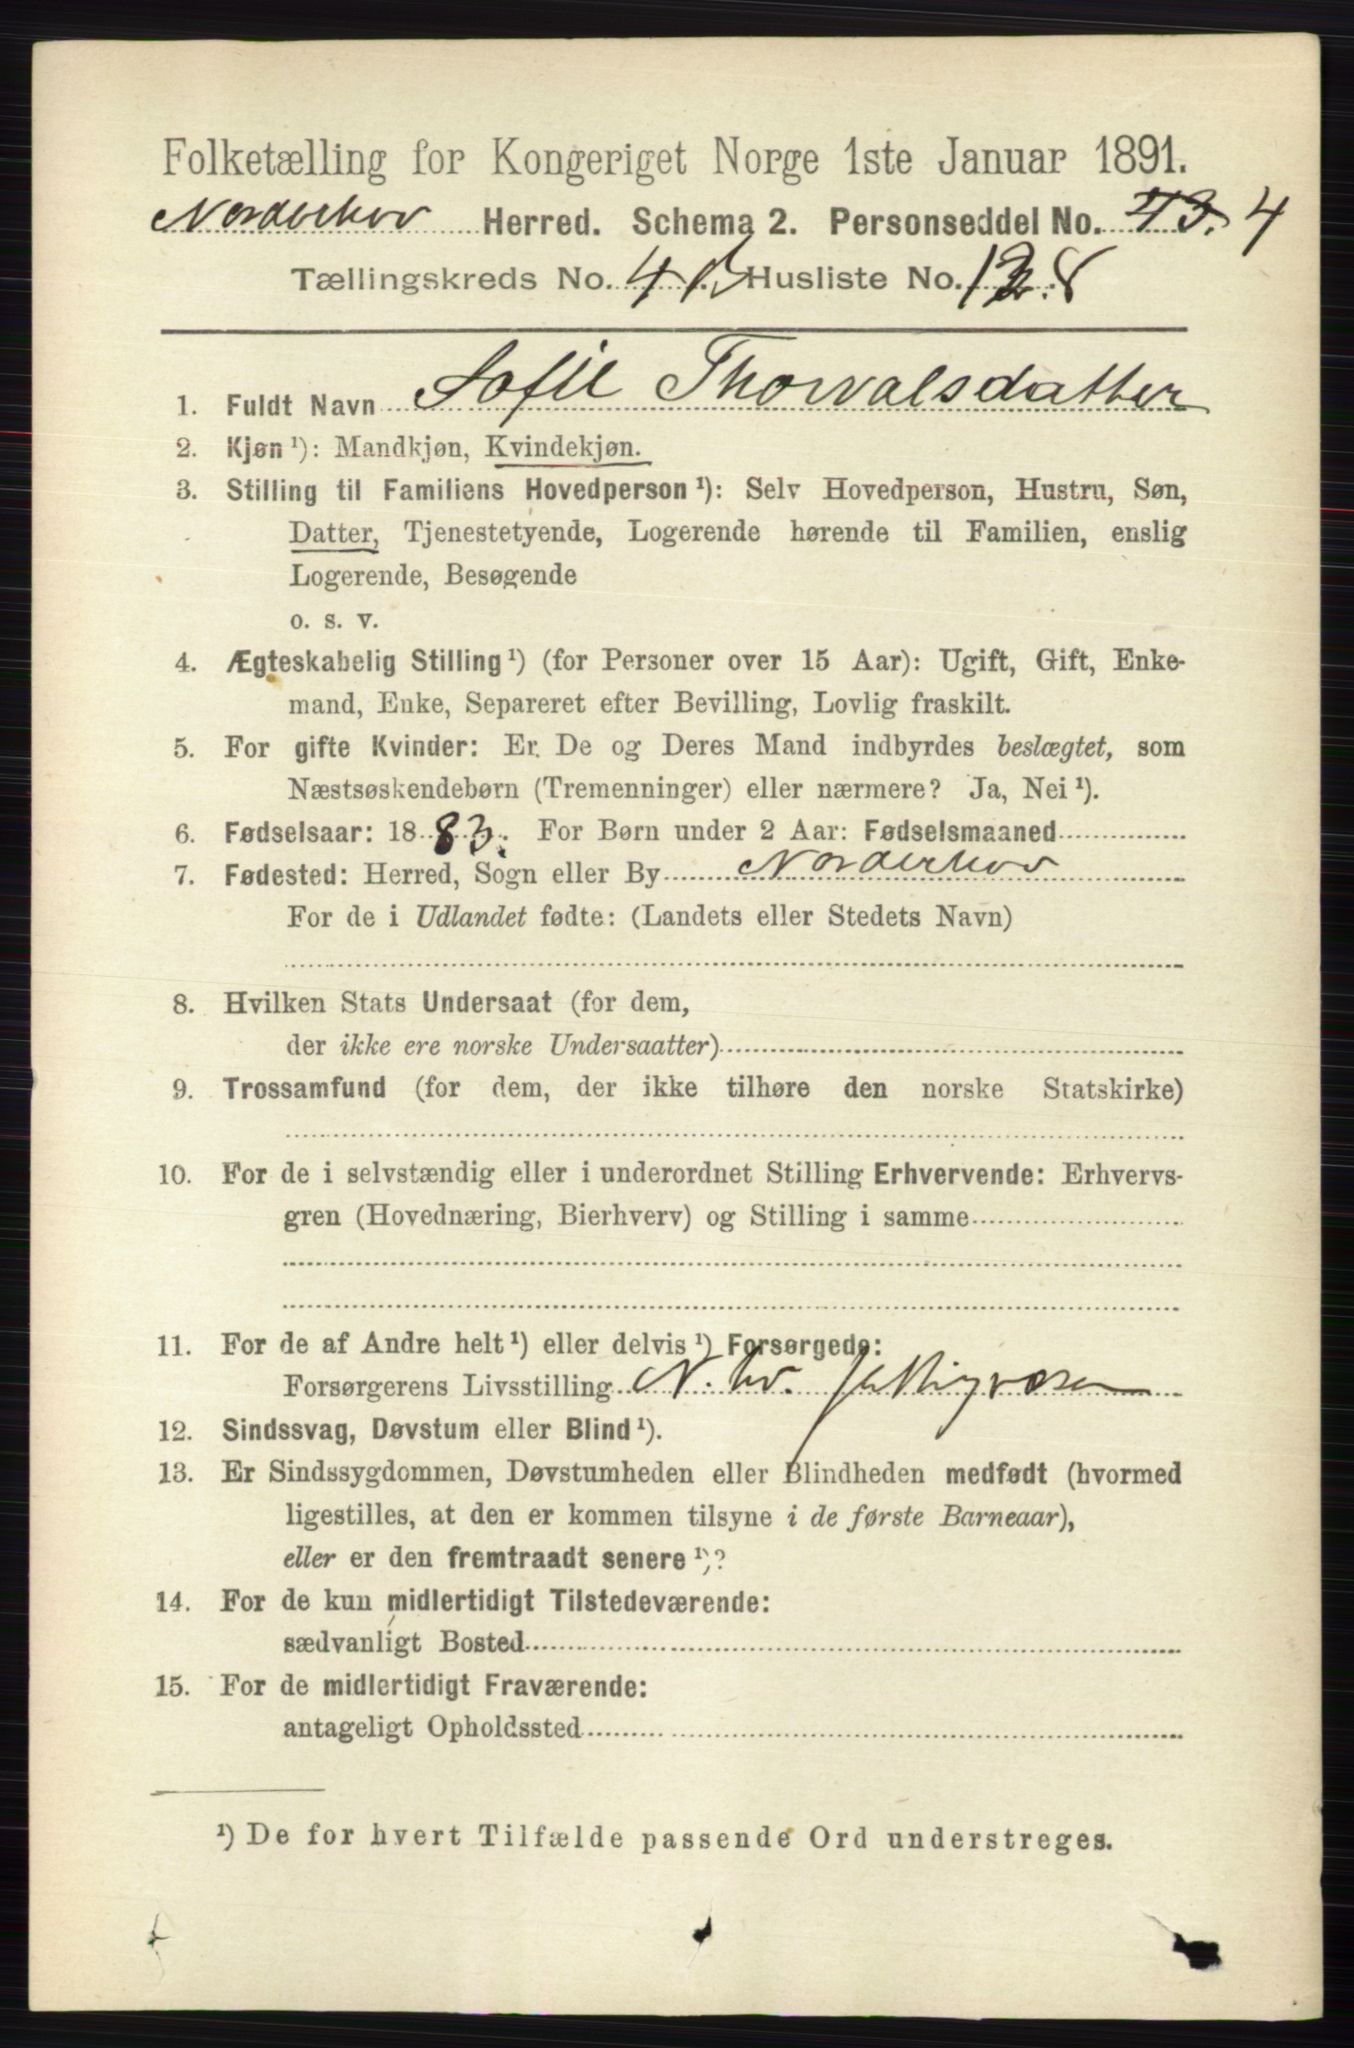 Folketælling for Kongeriget Norge 1ste Januar 1891.
Norderhov Herred. Schema 2. Personseddel No. 43. 4
Tællingskreds No. 4 Husliste No.
1. Fuldt Navn Sofie Thorvalsdatter
2. Kjøn ¹): Mandkjøn, Kvindekjøn.
3. Stilling til Familiens Hovedperson ¹): Selv Hovedperson, Hustru, Søn,
Datter, Tjenestetyende, Logerende hørende til Familien, enslig
Logerende, Besøgende
o. s. v.
4. Ægteskabelig Stilling ¹) (for Personer over 15 Aar): Ugift, Gift, Enke-
mand, Enke, Separeret efter Bevilling, Lovlig fraskilt.
5. For gifte Kvinder: Er De og Deres Mand indbyrdes beslægtet, som
Næstsøskendebørn (Tremenninger) eller nærmere? Ja, Nei ¹).
6. Fødselsaar: 1883. For Børn under 2 Aar: Fødselsmaaned
7. Fødested: Herred, Sogn eller By Norderhov
For de i Udlandet fødte: (Landets eller Stedets Navn)
8. Hvilken Stats Undersaat (for dem,
der ikke ere norske Undersaatter)
9. Trossamfund (for dem, der ikke tilhøre den norske Statskirke)
10. For de i selvstændig eller i underordnet Stilling Erhvervende: Erhvervs-
gren (Hovednæring, Bierhverv) og Stilling i samme
11. For de af Andre helt ¹) eller delvis ¹) Forsørgede:
Forsørgerens Livsstilling
12. Sindssvag, Døvstum eller Blind ¹).
13. Er Sindssygdommen, Døvstumheden eller Blindheden medfødt (hvormed
ligestilles, at den er kommen tilsyne i de første Barneaar),
eller er den fremtraadt senere ¹)?
14. For de kun midlertidigt Tilstedeværende:
sædvanligt Bosted
15. For de midlertidigt Fraværende:
antageligt Opholdssted
¹) De for hvert Tilfælde passende Ord understreges.